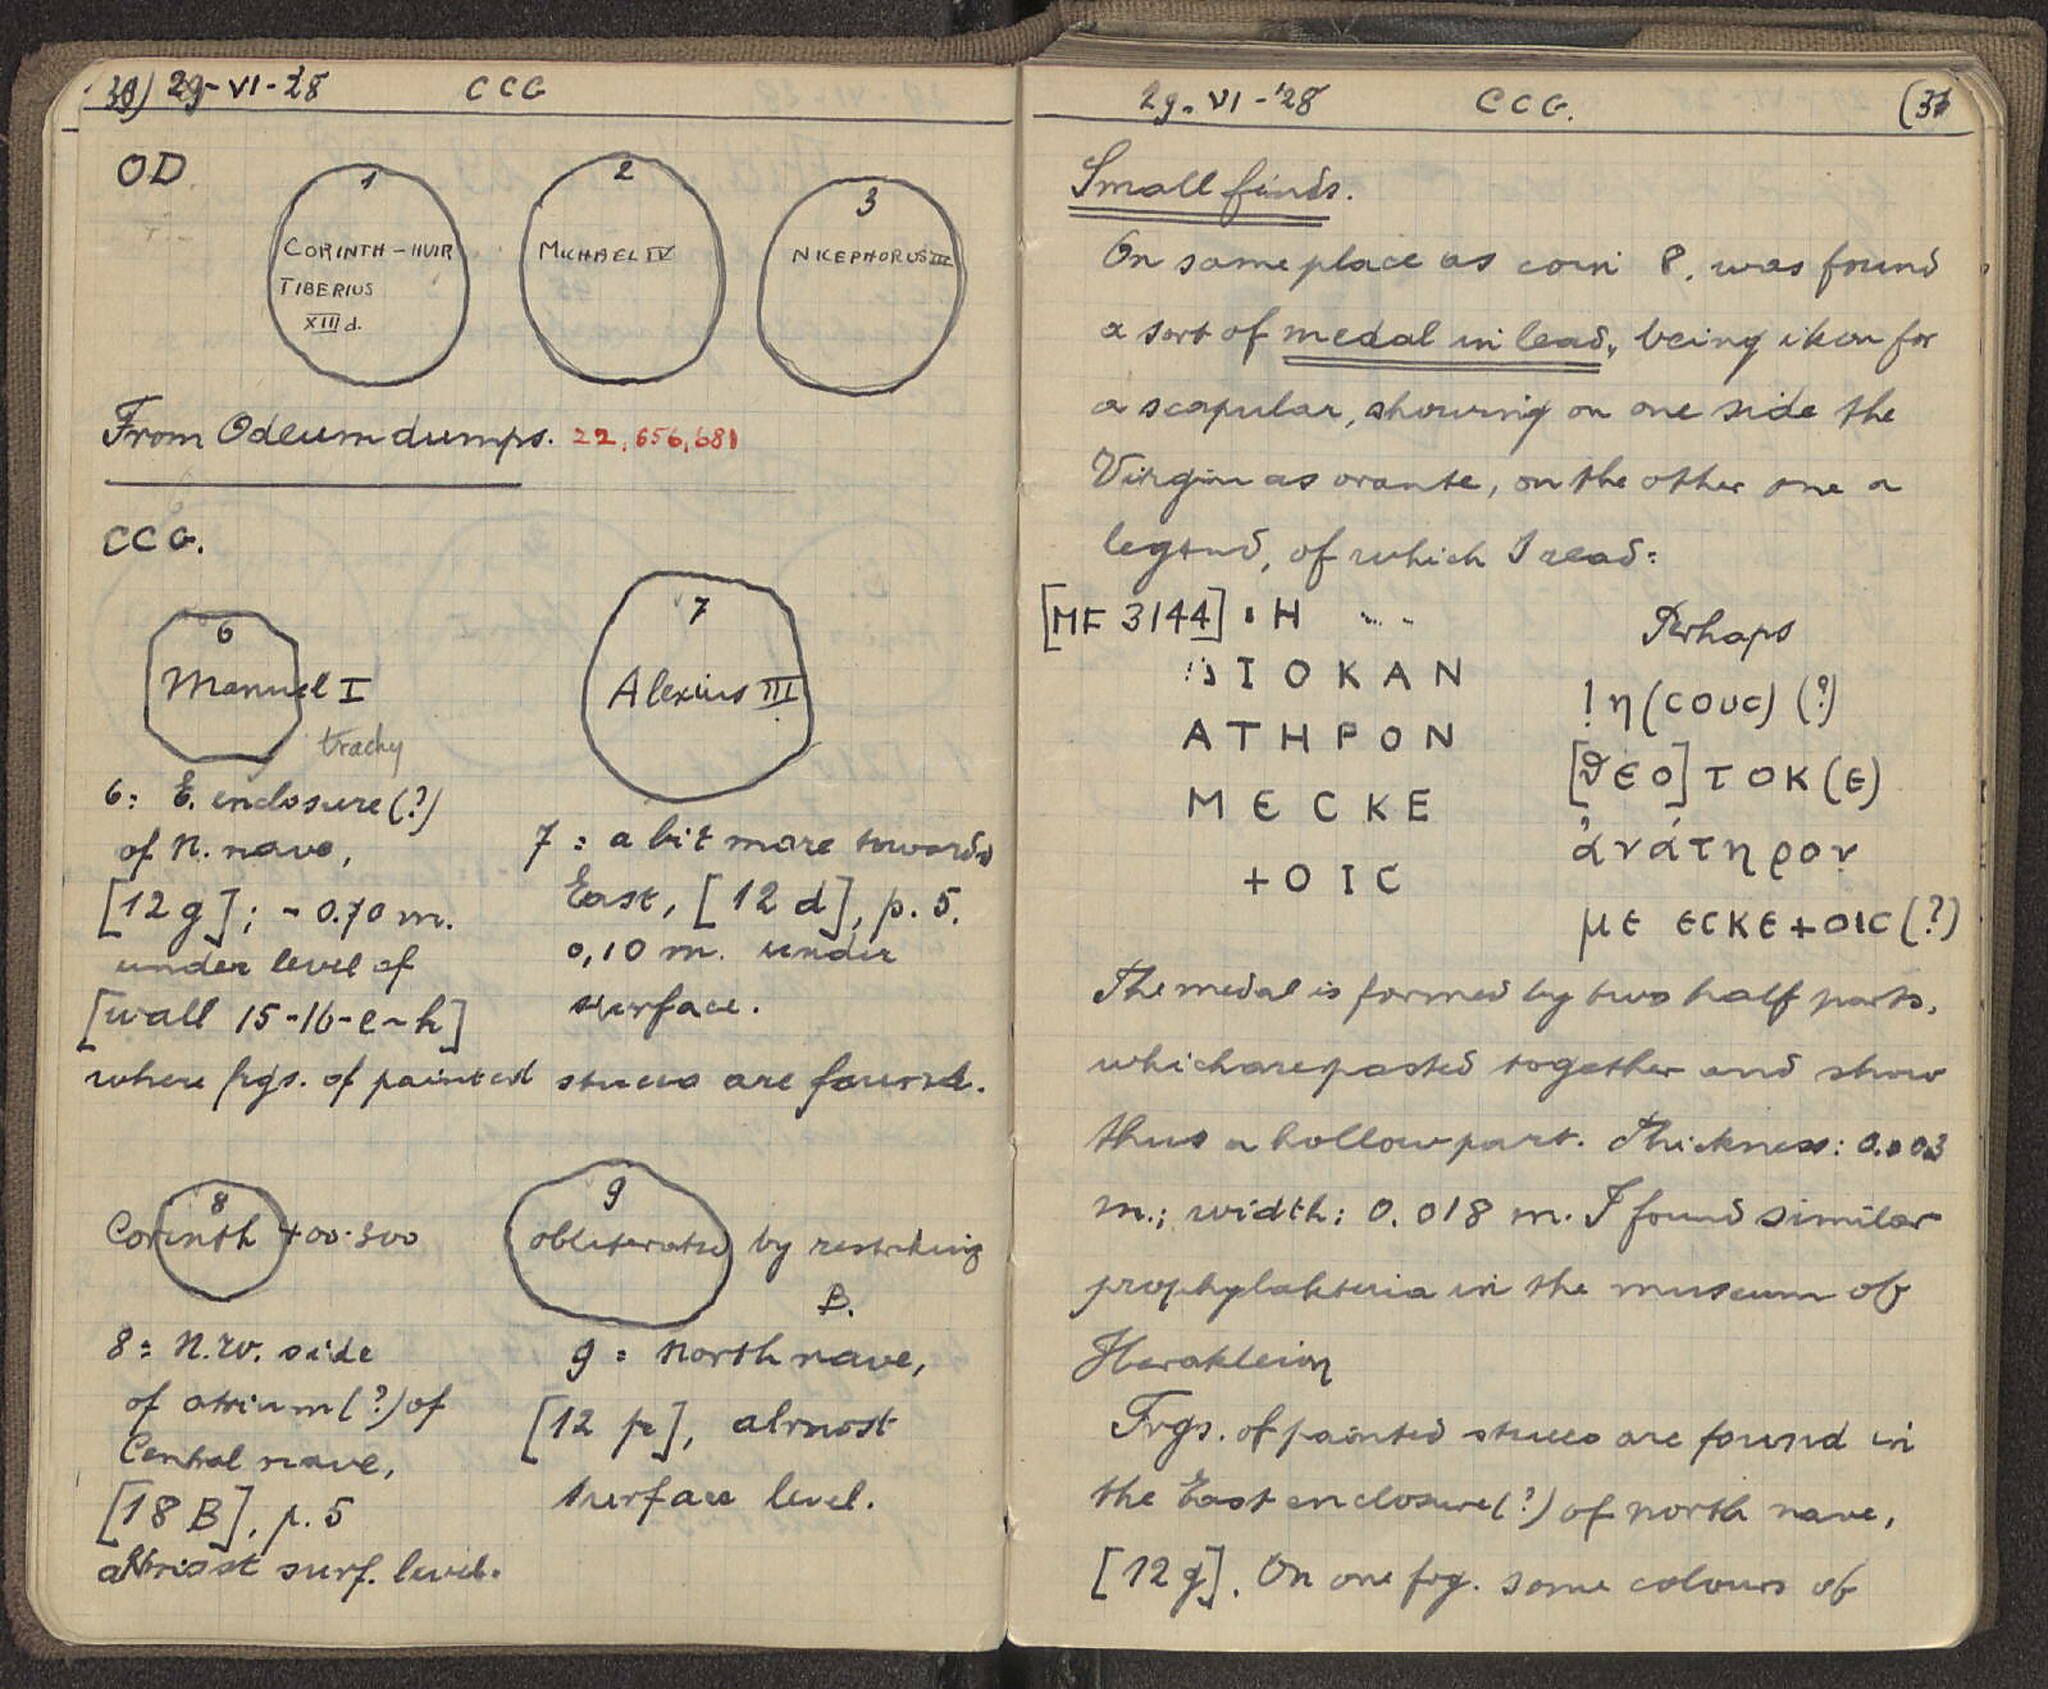 30) 29-VI-28 CCG
OD.
1
CORINTH – IIVIR
TIBERIUS
XIII d.
2
MICHAEL IV
3
NICEPHORUS III
From Odeum dumps. 22, 656, 681
CCG.
6
Manuel I
trachy
7
Alexius III
6: E. enclosure(?)
of N. nave,
[12 g]; - 0.70 m.
under level of
[wall 15-16-e-h]
where frgs. of painted stucco are found.
7: a bit more towards
East, [12 d], p. 5.
0,10 m. under
surface.
8
Corinth 400-300
9
obliterated by restriking
B.
8: N.W. side
of atrium(?) of
Central nave,
[18 B], p. 5
almost surf. level.
9: North nave,
[12 p], almost
surface level.
29-VI-'28 CCG. (31
Small finds.
On same place as coin 8, was found
a sort of medal in lead, being ikon for
a scapular, showing on one side the
Virgin as orante, on the other one a
legend, of which I read:
[MF 3144] . H ... .
ΤΟΚΑΝ
ΑΤΗΡΟΝ
ΜЄCΚΕ
+ΟΙC
Perhaps
Ιη(σους) (?)
[ϑεο]τοκ(ε)
ἀνάτηρον
με εCΚε+ΟΙC(?)
The medal is formed by two half parts,
which are pasted together and show
thus a hollow part. Thickness: 0.003
m.; width: 0.018 m. I found similar
prophylakteria in the museum of
Herakleion
Frgs. of painted stucco are found in
the East enclosure(?) of north nave,
[12 g]. On one frg. some colours of